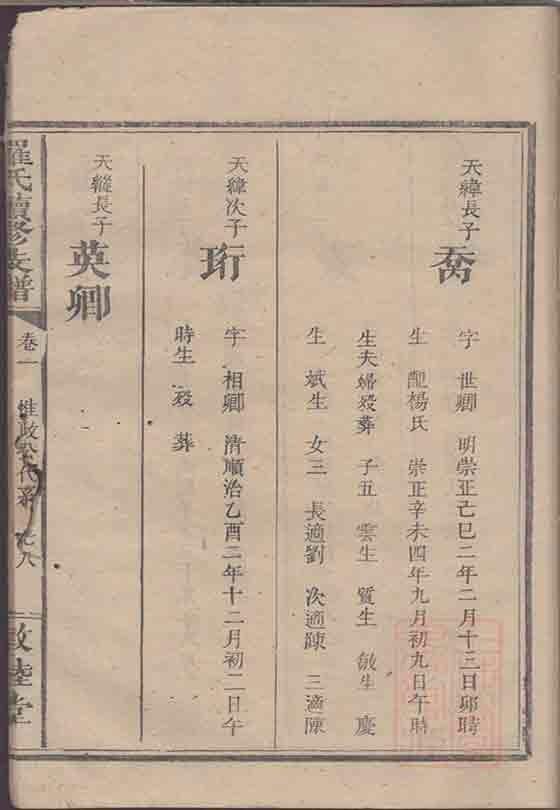 天緯長子
喬
字 世卿 明崇正己巳二年二月十三日卯時
生 配楊氏 崇正辛未四年九月初九日午時
生夫婦歿葬 子五 雲生 質生 敏生 慶
生 斌生 女三 長適劉 次適陳 三適陳
天緯次子
珩
字 相卿 清順治乙酉二年十二月初二日午
時生 歿 葬
天縱長子
英卿
羅氏續修族譜
卷一 惟政公代系
敦睦堂